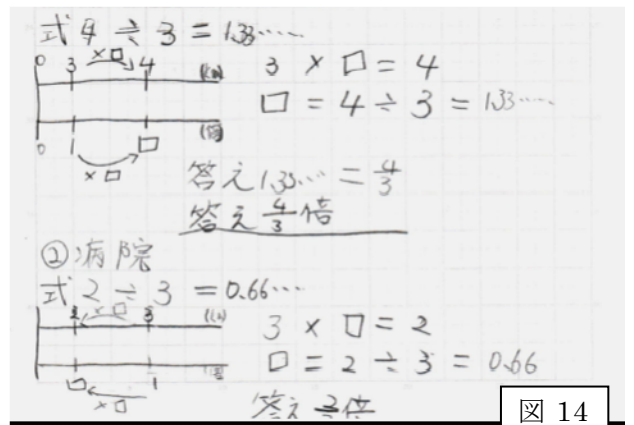 式 4 ÷ 3 = 1.33……
×□
0 3 4 (km)
3 × □ = 4
□ = 4 ÷ 3 = 1.33……
0 1 □ (倍)
×□
答え 1.33… = 4/3
答え 4/3 倍
② 病院
式 2 ÷ 3 = 0.66…
×□
2 3 (km)
3 × □ = 2
□ = 2 ÷ 3 = 0.66
□ 1
×□
答え 2/3 倍
図 14